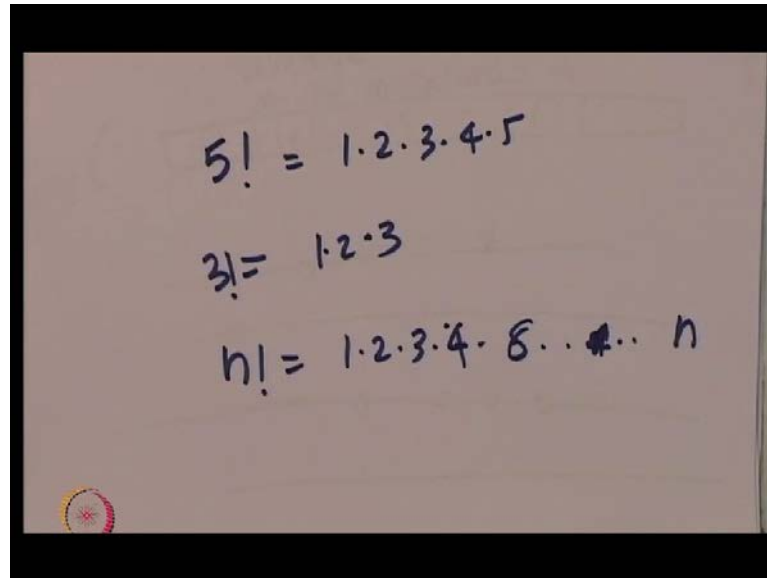 5! = 1·2·3·4·5
3! = 1·2·3
n! = 1·2·3·4·8.. .. n